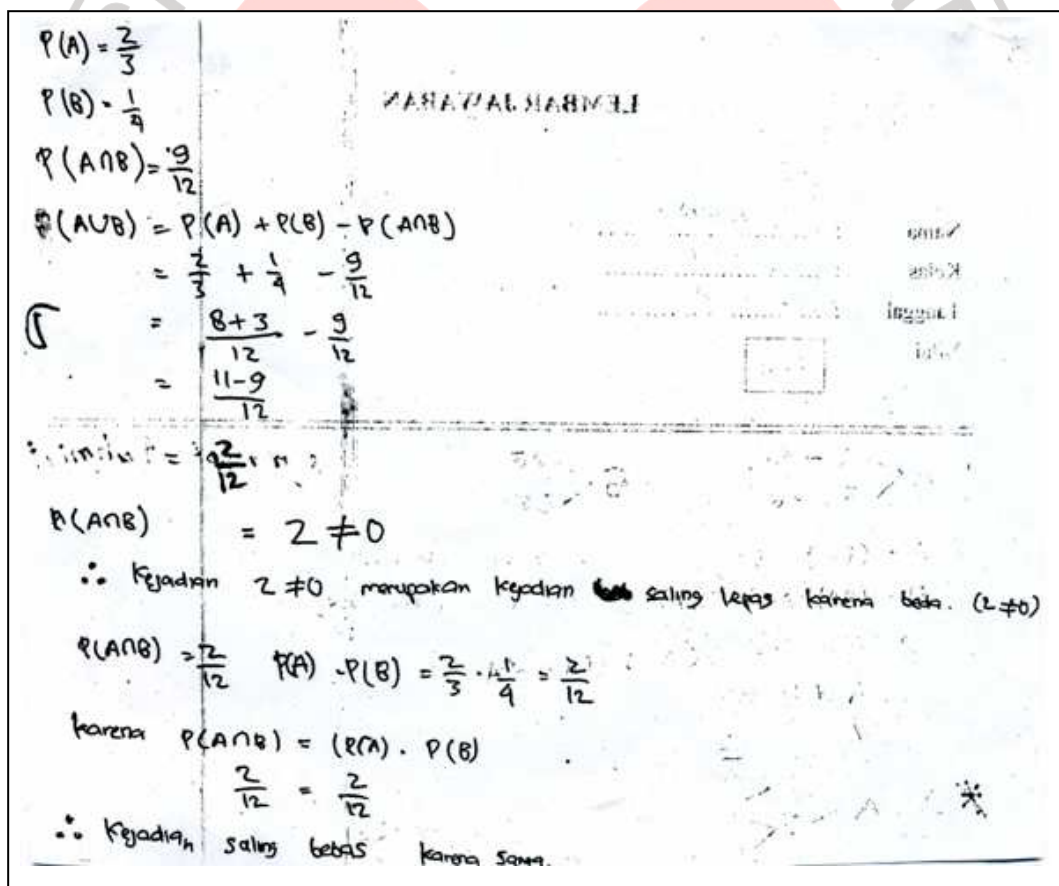 P(A) = 2/3
P(B) = 1/4
LEMBAR JAWABAN
P(A∩B) = 9/12
P(A∪B) = P(A) + P(B) - P(A∩B)
Nama
= 2/3 + 1/4 - 9/12
Kelas
= 8+3/12 - 9/12
Tanggal
Nilai
= 11-9/12
= 2/12
P(A∩B) = 2 ≠ 0
∴ Kejadian 2 ≠ 0 merupakan kejadian saling lepas karena beda. (2 ≠ 0)
P(A∩B) = 2/12 P(A) . P(B) = 2/3 . 1/4 = 2/12
karena P(A∩B) = (P(A) . P(B)
2/12 = 2/12
∴ Kejadian saling bebas karena sama.